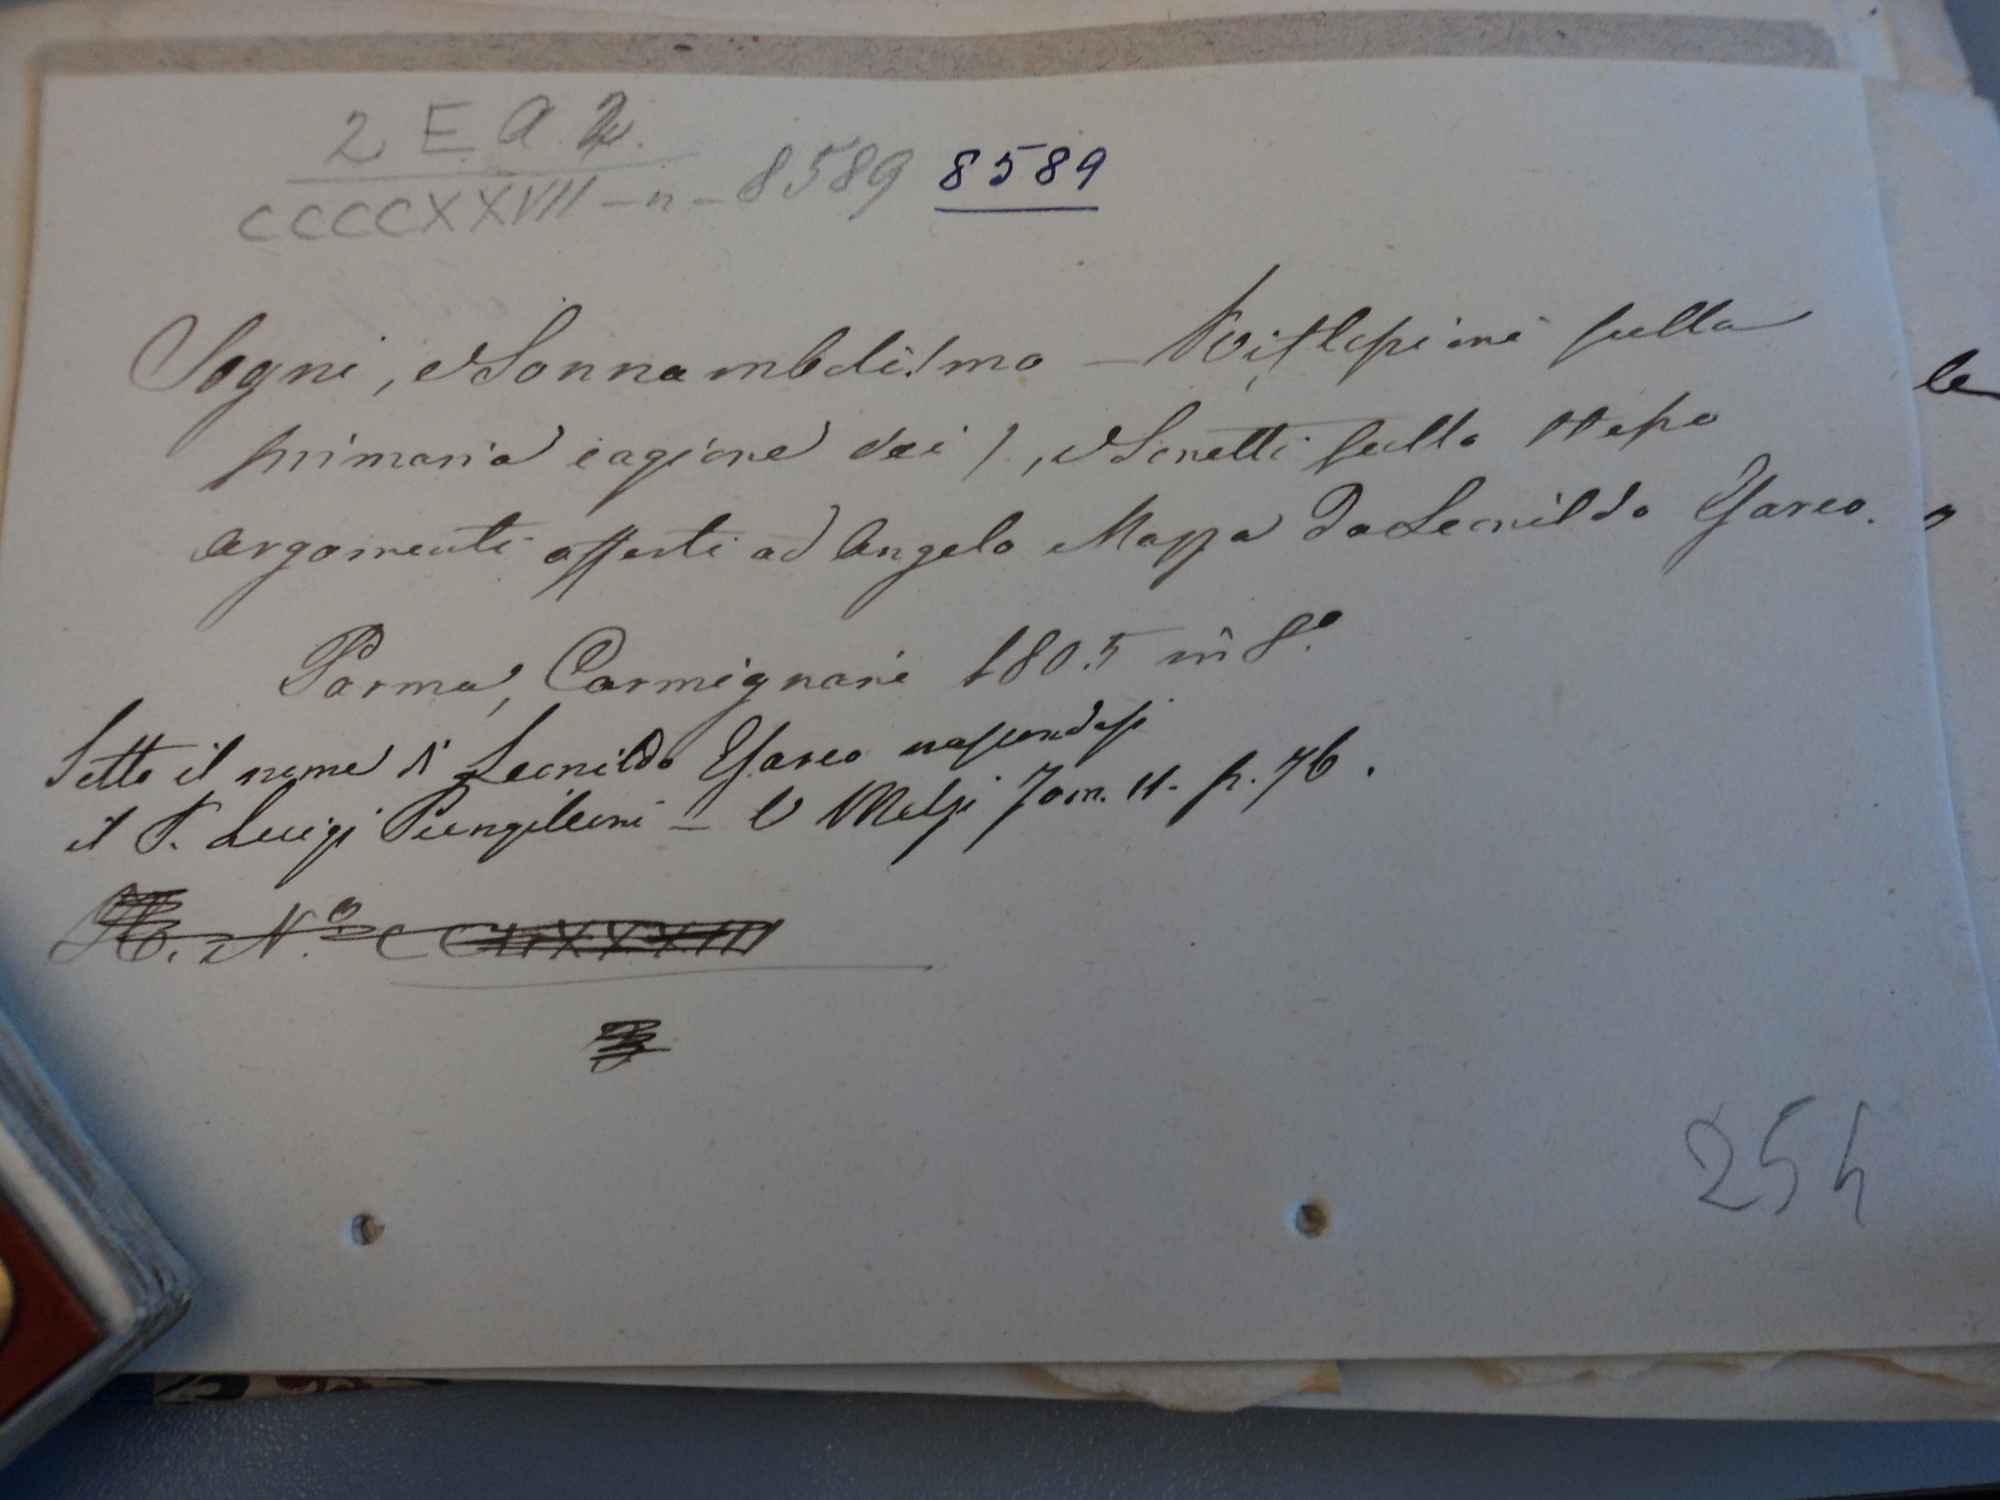 2 E. A 2.
CCCCXXVII - n - 8589 8589
Sogni, e Sonnambulismo - Riflessioni sulla
primaria cagione dei), e Sonetti sullo stesso
argomenti offerti ad Angelo Mazza da Leonildo Esareo.
Parma, Carmignani 1805 in 8.º
Sotto il nome di Leonildo Esareo nascondesi
il P. Luigi Pungileoni - V Melzi Tom. II. p. 76.
N.º CC
254
le